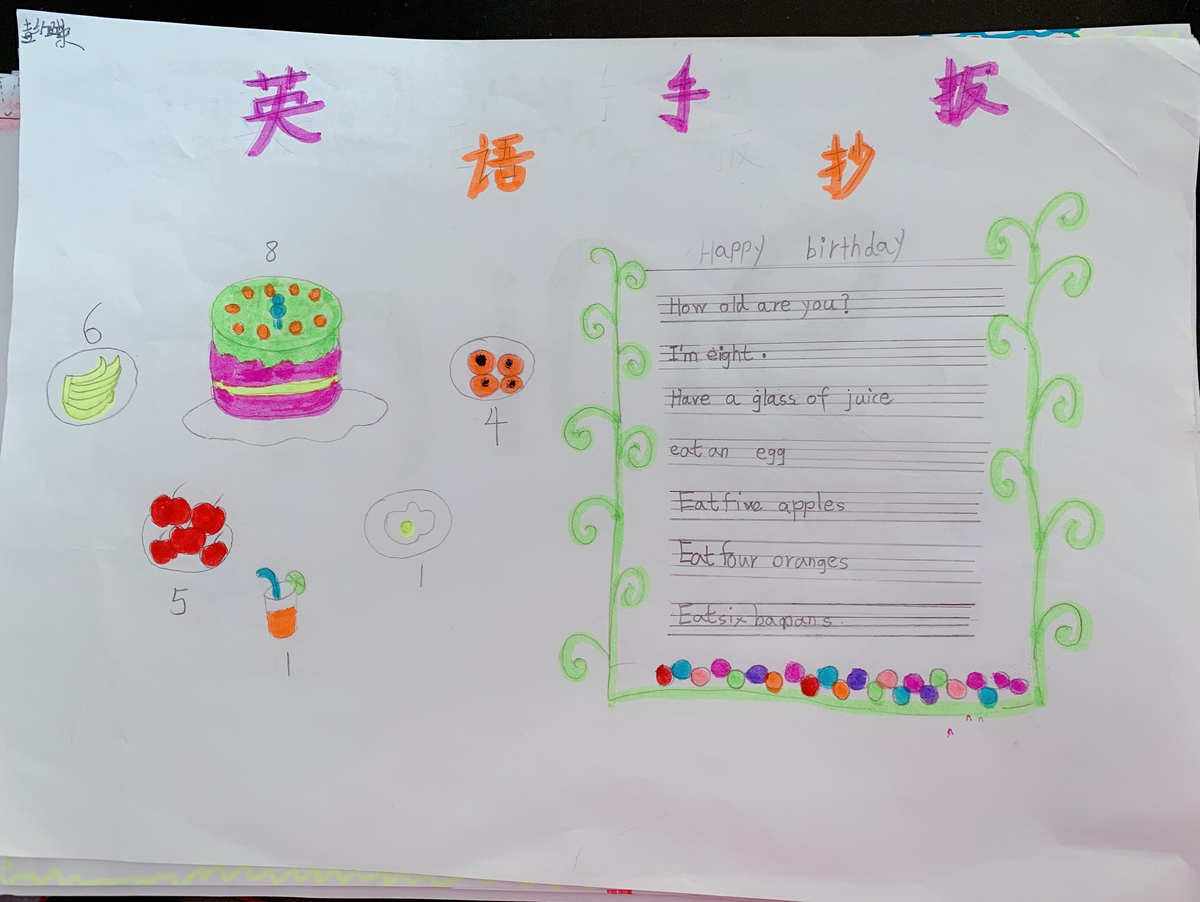 英语手抄报
8
6
4
5
1
1
Happy birthday
How old are you?
I'm eight.
Have a glass of juice
eat an egg
Eat five apples
Eat four oranges
Eat six